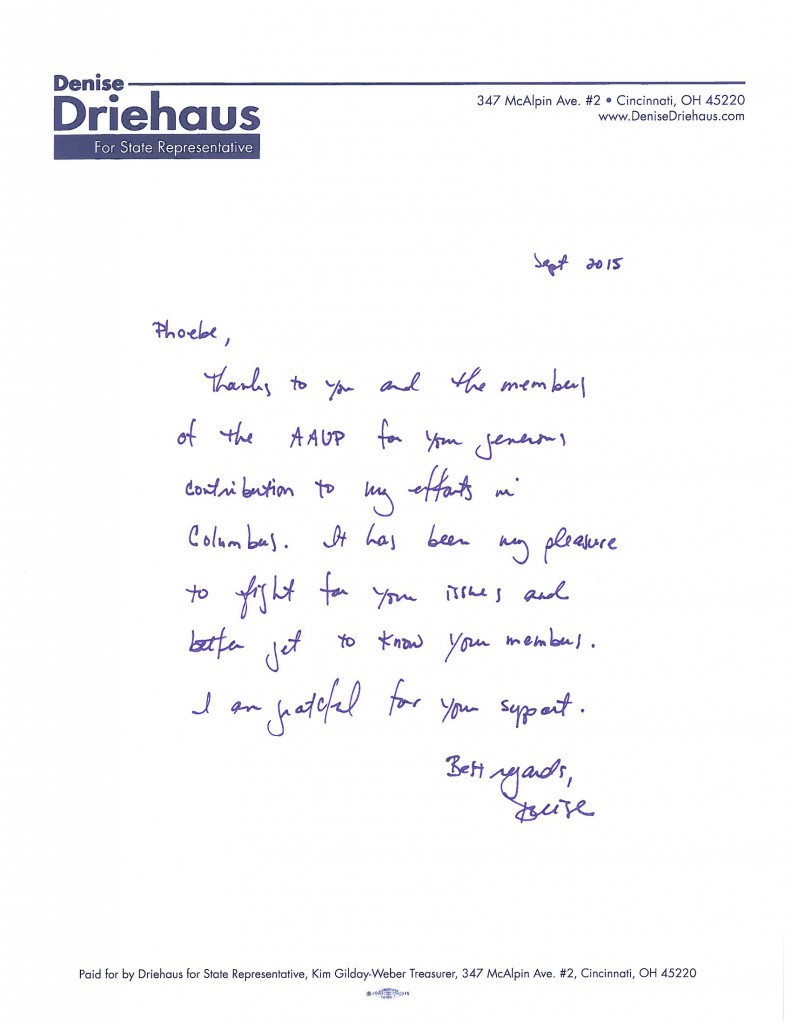 Denise
Driehaus
For State Representative
347 McAlpin Ave. #2 • Cincinnati, OH 45220
www.DeniseDriehaus.com
Sept 2015
Phoebe,
Thanks to you and the members
of the AAUP for your generous
contribution to my efforts in
Columbus. It has been my pleasure
to fight for your issues and
better get to know your members.
I am grateful for your support.
Best regards,
Denise
Paid for by Driehaus for State Representative, Kim Gilday-Weber Treasurer, 347 McAlpin Ave. #2, Cincinnati, OH 45220